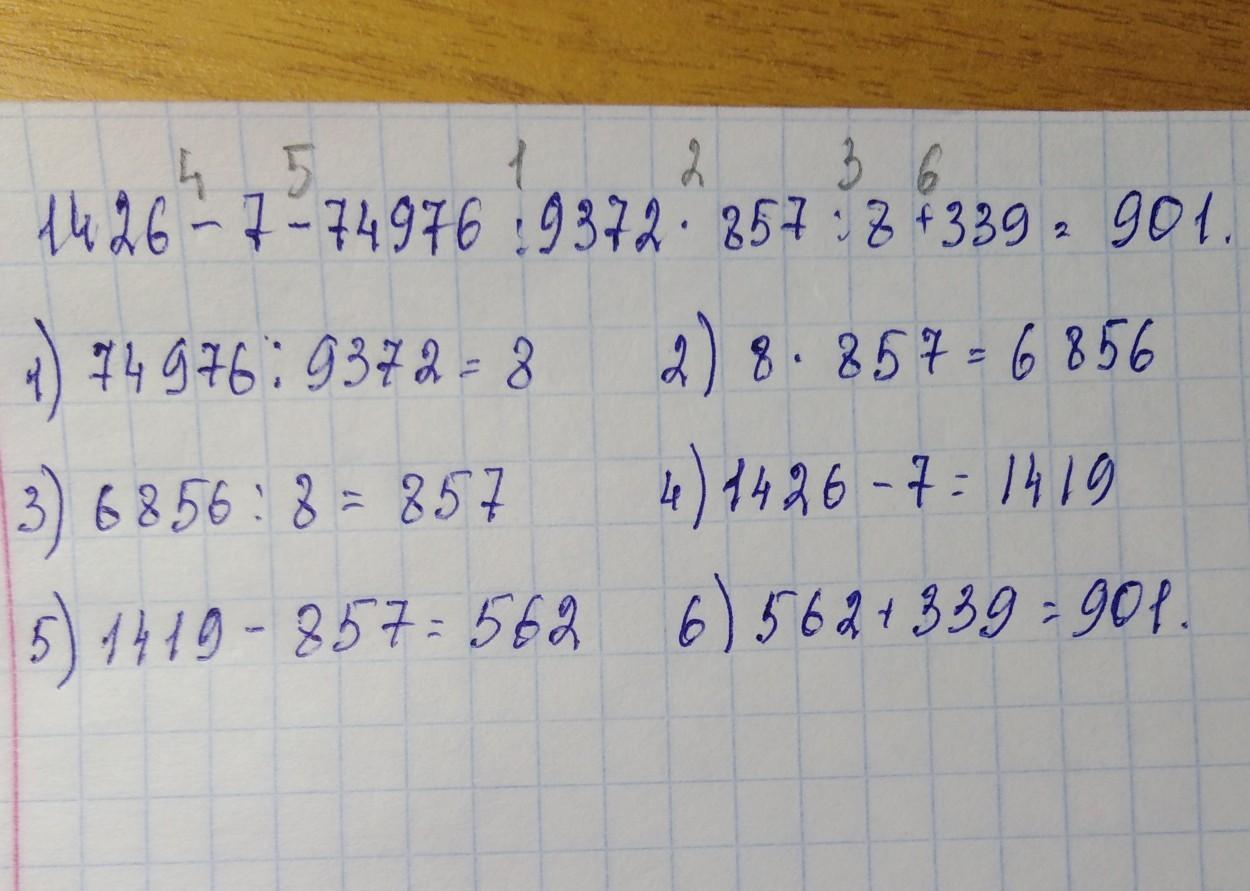 4 5 1 2 3 6
1426 - 7 - 74976 : 9372 · 857 : 8 + 339 = 901.
1) 74976 : 9372 = 8 2) 8 · 857 = 6856
3) 6856 : 8 = 857 4) 1426 - 7 = 1419
5) 1419 - 857 = 562 6) 562 + 339 = 901.